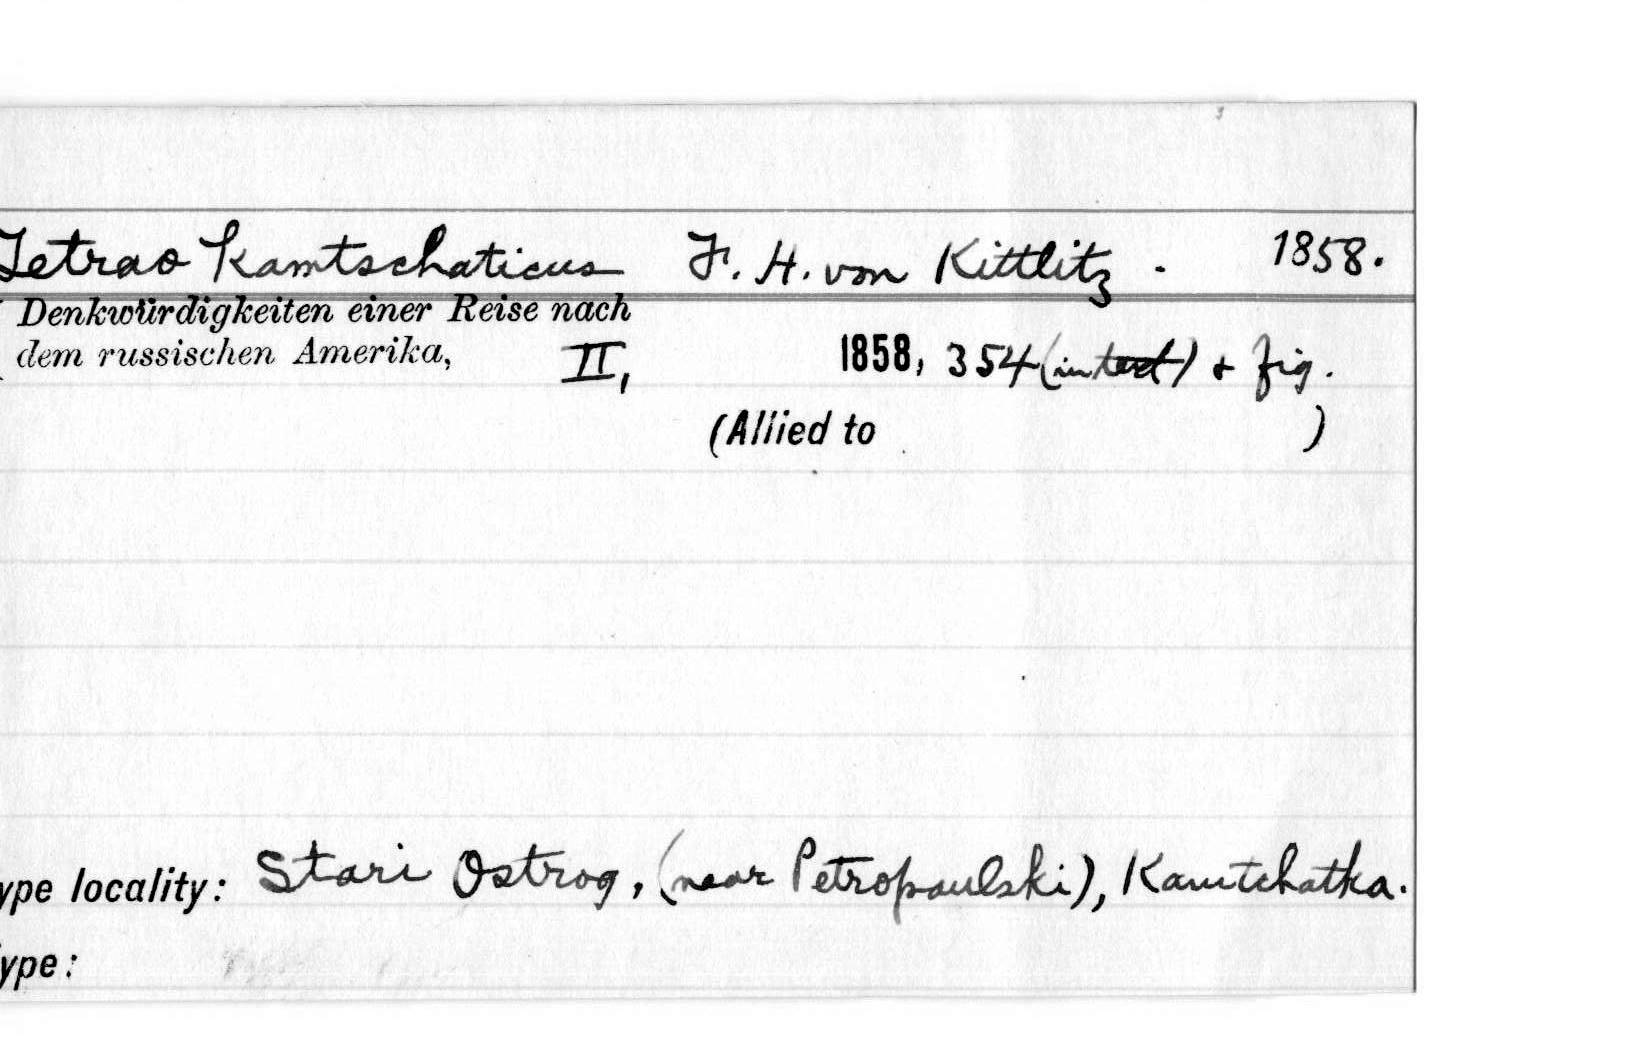 Tetrao Kamtschaticus F. H. von Kittlitz. 1858.
Denkwürdigkeiten einer Reise nach
dem russischen Amerika, II, 1858, 354 (in text) + fig.
(Allied to )
ype locality: Stari Ostrog, (near Petropaulski), Kamtchatka.
ype: